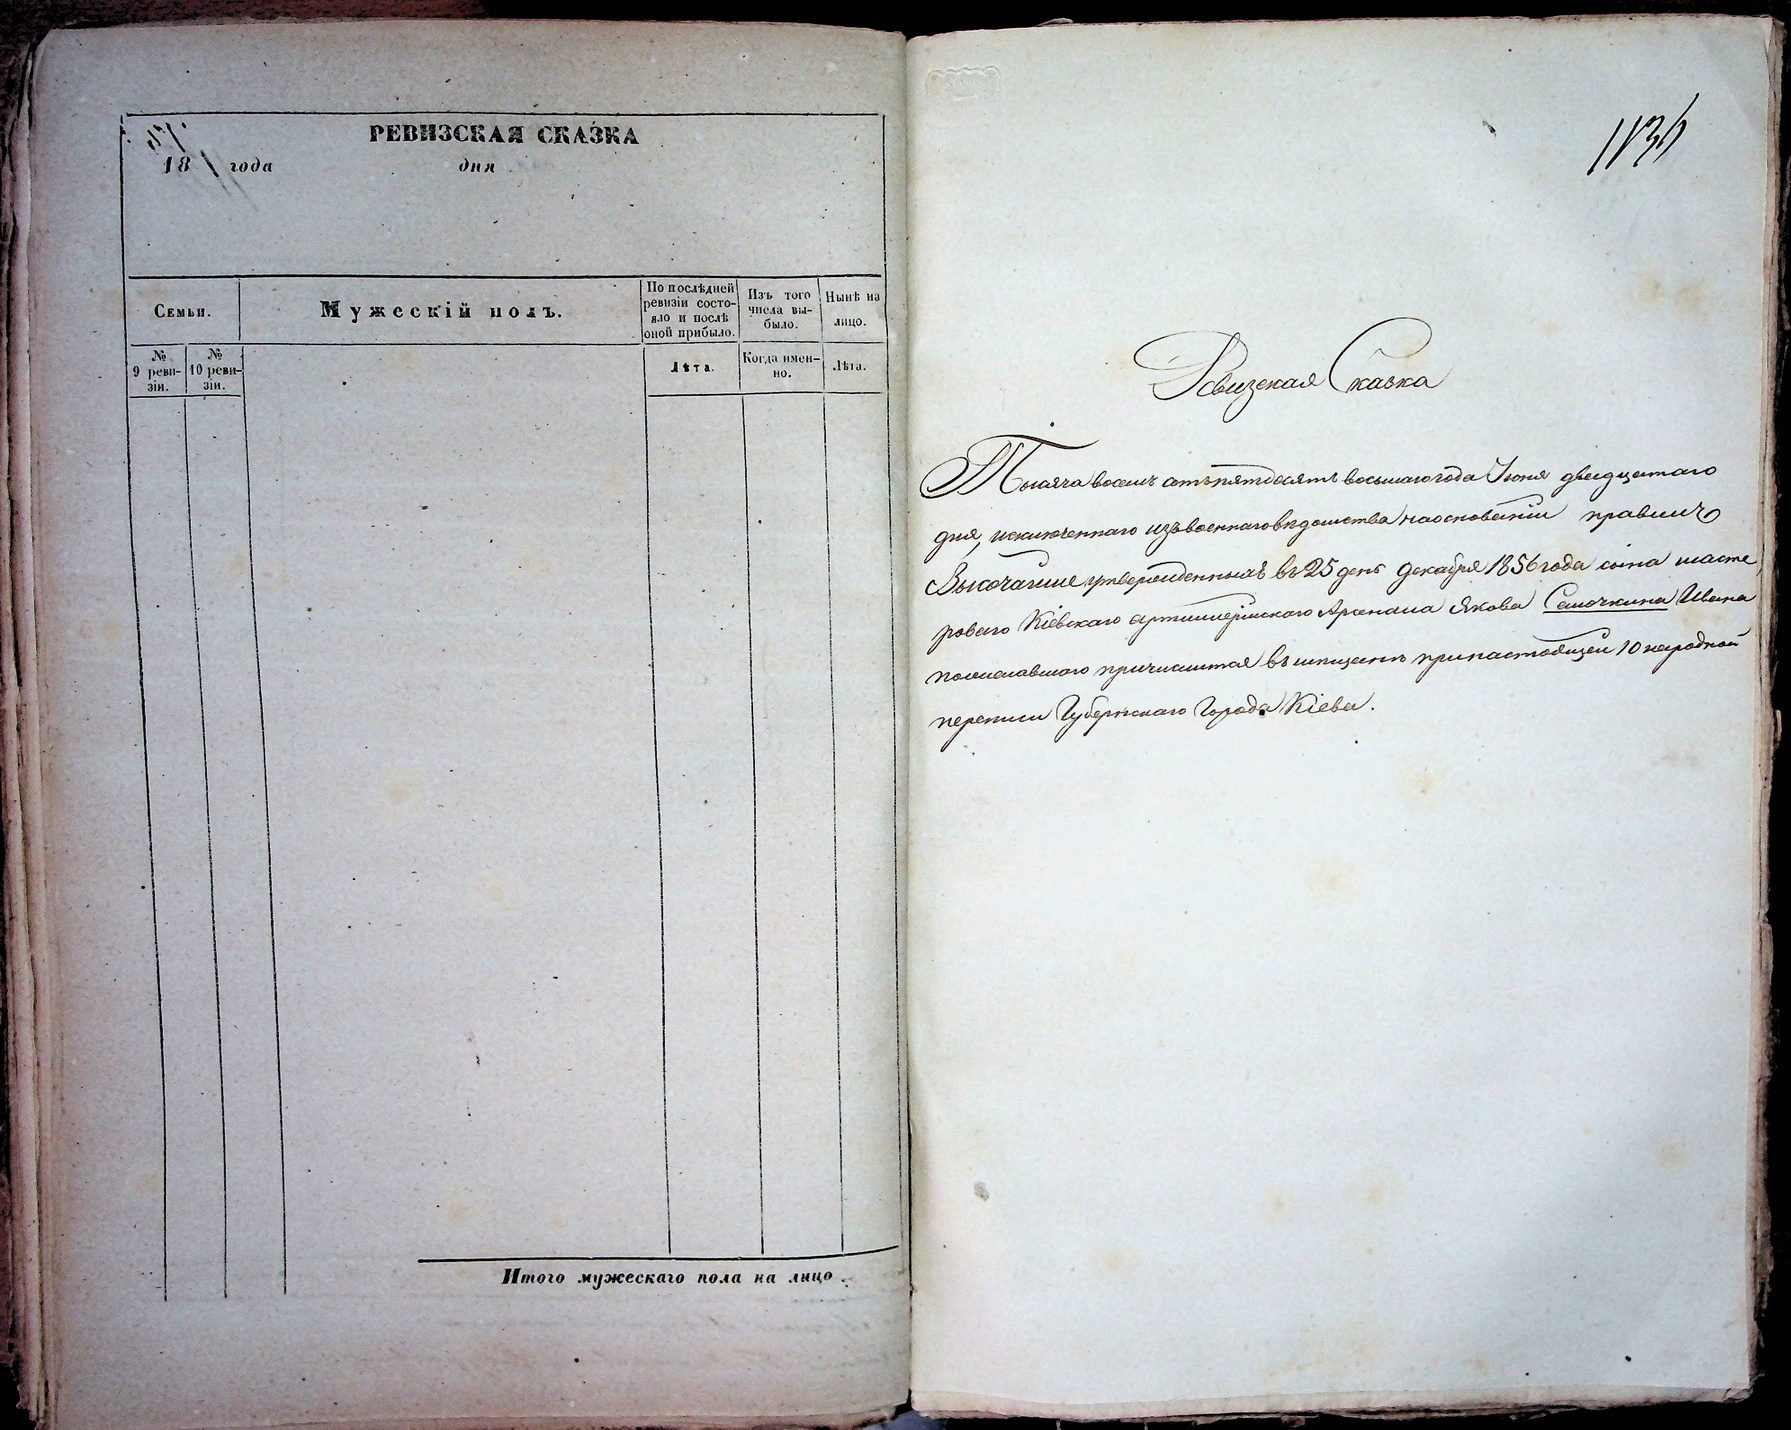 РЕВИЗСКАЯ СКАЗКА
18 года дня
Семьи.
Мужескій полъ.
По послѣдней
ревизіи состо-
яло и послѣ
оной прибыло.
Изъ того
числа вы-
было.
Нынѣ на
лицо.
№
9 реви-
зіи.
№
10 реви-
зіи.
Лѣта.
Когда имен-
но.
Лѣта.
Итого мужескаго пола на лицо
Ревизская Сказка
Тысяча восемъ сотъ пятдесятъ восьмаго года Іюня двадцатаго
дня, исключеннаго изъ военнаго вѣдомства на основаніи правилъ
Высочайше утвержденныхъ въ 25 день Декабря 1856 года сына масте
роваго Кіевскаго артиллерійскаго Арсенала Якова Семочкина Ивана
пожелавшаго причислится въ мещане при настоящей 10 народной
переписи Губернскаго Города Кіева.